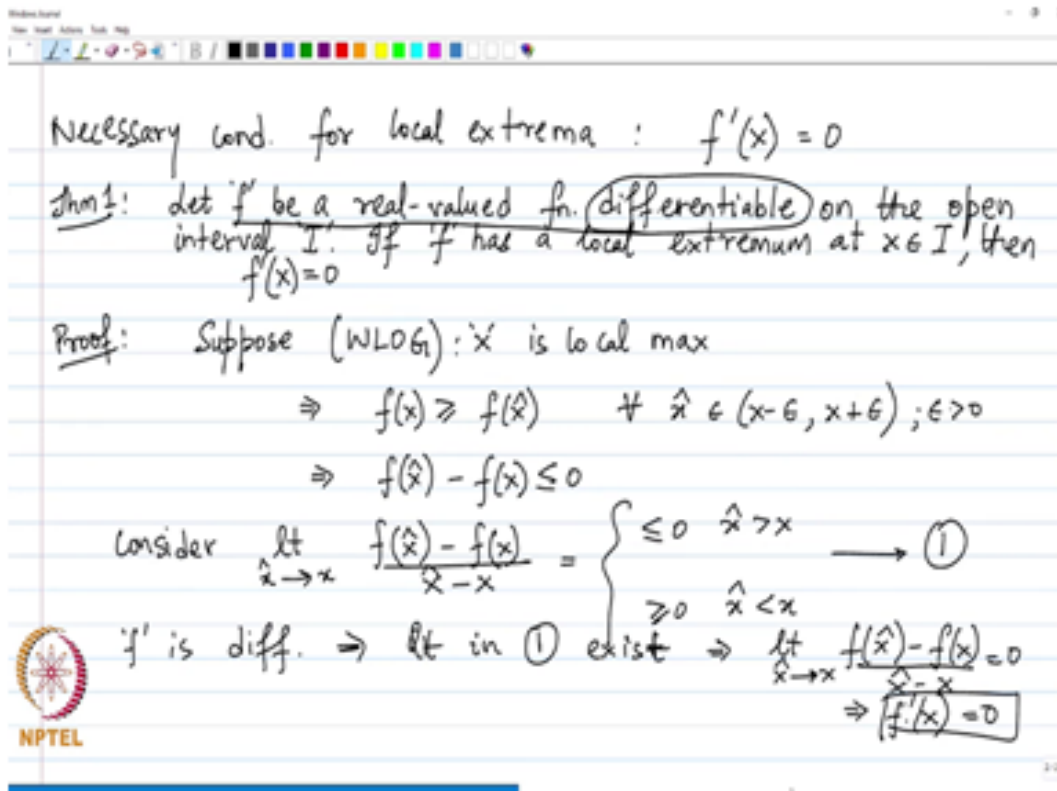 Windows Journal
View Insert Actions Tools Help
Necessary cond. for local extrema : f'(x) = 0
Thm 1: Let 'f' be a real-valued fn. differentiable on the open
interval 'I'. If 'f' has a local extremum at x ∈ I, then
f'(x) = 0
Proof: Suppose (WLOG): 'x' is local max
⇒ f(x) ≥ f(x̂) ∀ x̂ ∈ (x-ϵ, x+ϵ) ; ϵ>0
⇒ f(x̂) - f(x) ≤ 0
Consider lt x̂→x (f(x̂) - f(x))/(x̂ - x) = { ≤0 x̂ > x ⟶ ①
≥0 x̂ < x
'f' is diff. ⇒ lt in ① exist ⇒ lt x̂→x (f(x̂) - f(x))/(x̂ - x) = 0
⇒ f'(x) = 0
NPTEL